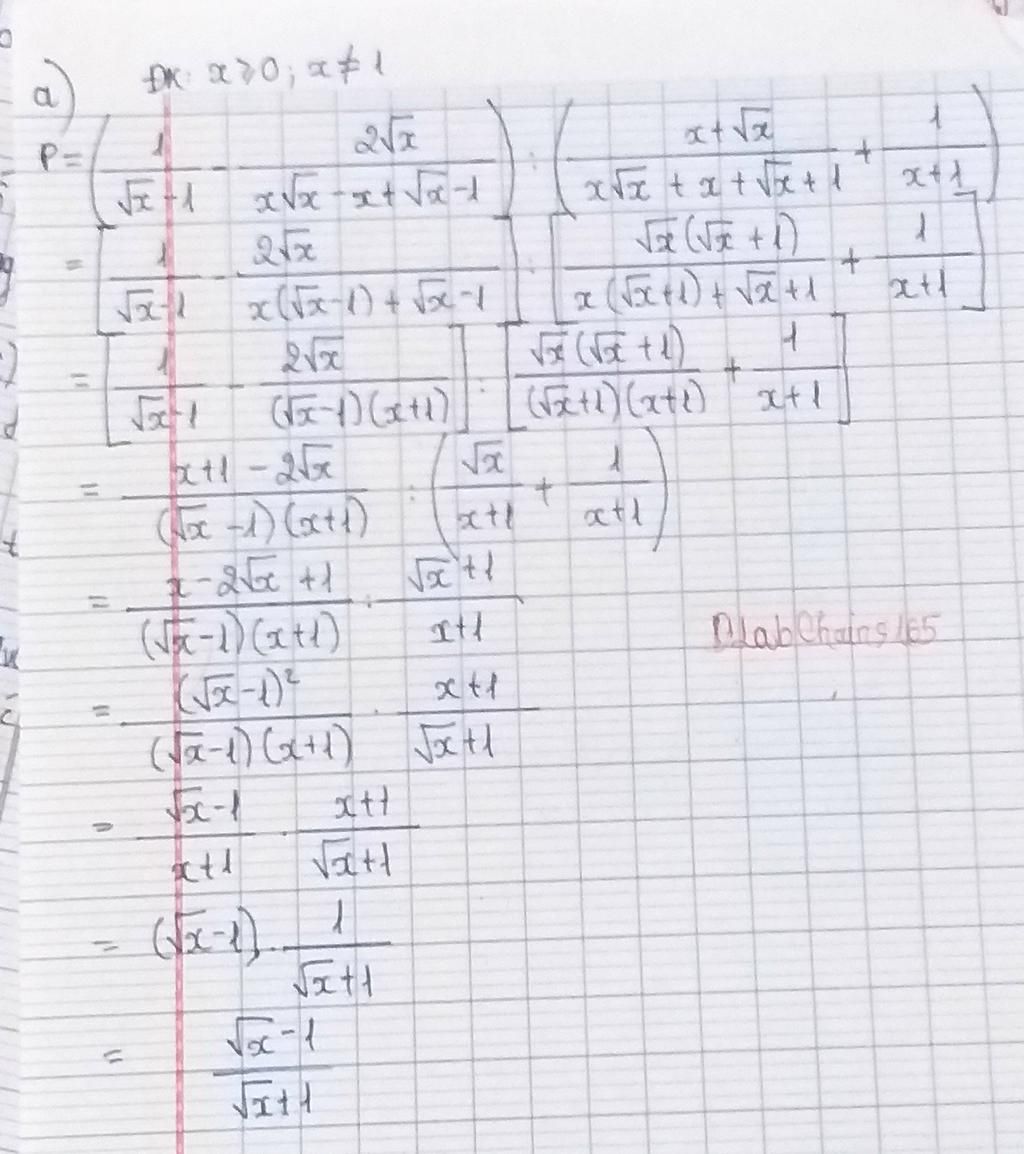 a) ĐK: x ≥ 0; x ≠ 1
P = (1/(√x - 1) - 2√x/(x√x - x + √x - 1)) : ((x + √x)/(x√x + x + √x + 1) + 1/(x + 1))
= [1/(√x - 1) - 2√x/(x(√x - 1) + √x - 1)] : [√x(√x + 1)/(x(√x + 1) + √x + 1) + 1/(x + 1)]
= [1/(√x - 1) - 2√x/((√x - 1)(x + 1))] : [√x(√x + 1)/((√x + 1)(x + 1)) + 1/(x + 1)]
= (x + 1 - 2√x)/((√x - 1)(x + 1)) : (√x/(x + 1) + 1/(x + 1))
= (x - 2√x + 1)/((√x - 1)(x + 1)) : (√x + 1)/(x + 1)
= (√x - 1)²/((√x - 1)(x + 1)) . (x + 1)/(√x + 1)
= (√x - 1)/(x + 1) . (x + 1)/(√x + 1)
= (√x - 1) . 1/(√x + 1)
= (√x - 1)/(√x + 1)